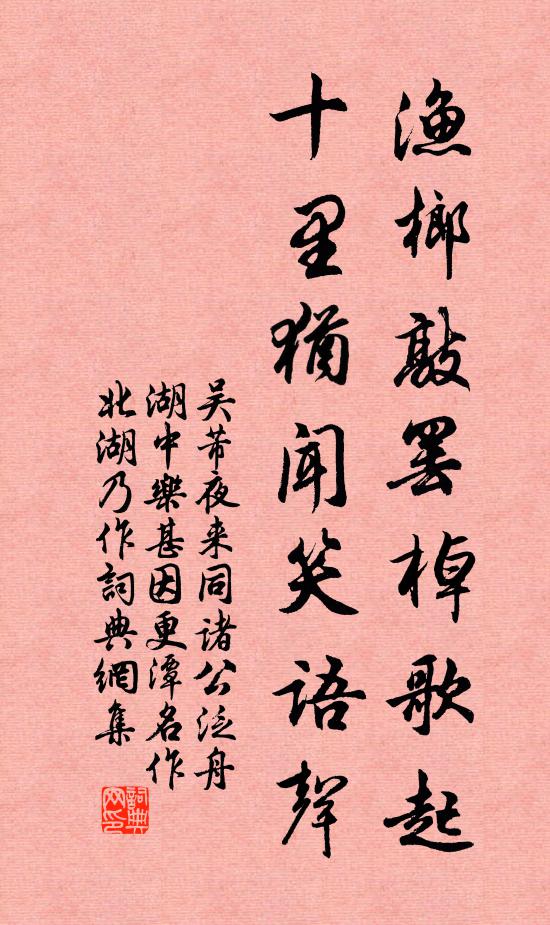 漁榔敲罢棹歌起
十里猶闻笑语聲
吴芾夜来同诸公泛舟
湖中樂甚因更潭名作
北湖乃作詞典網集
詞典网印